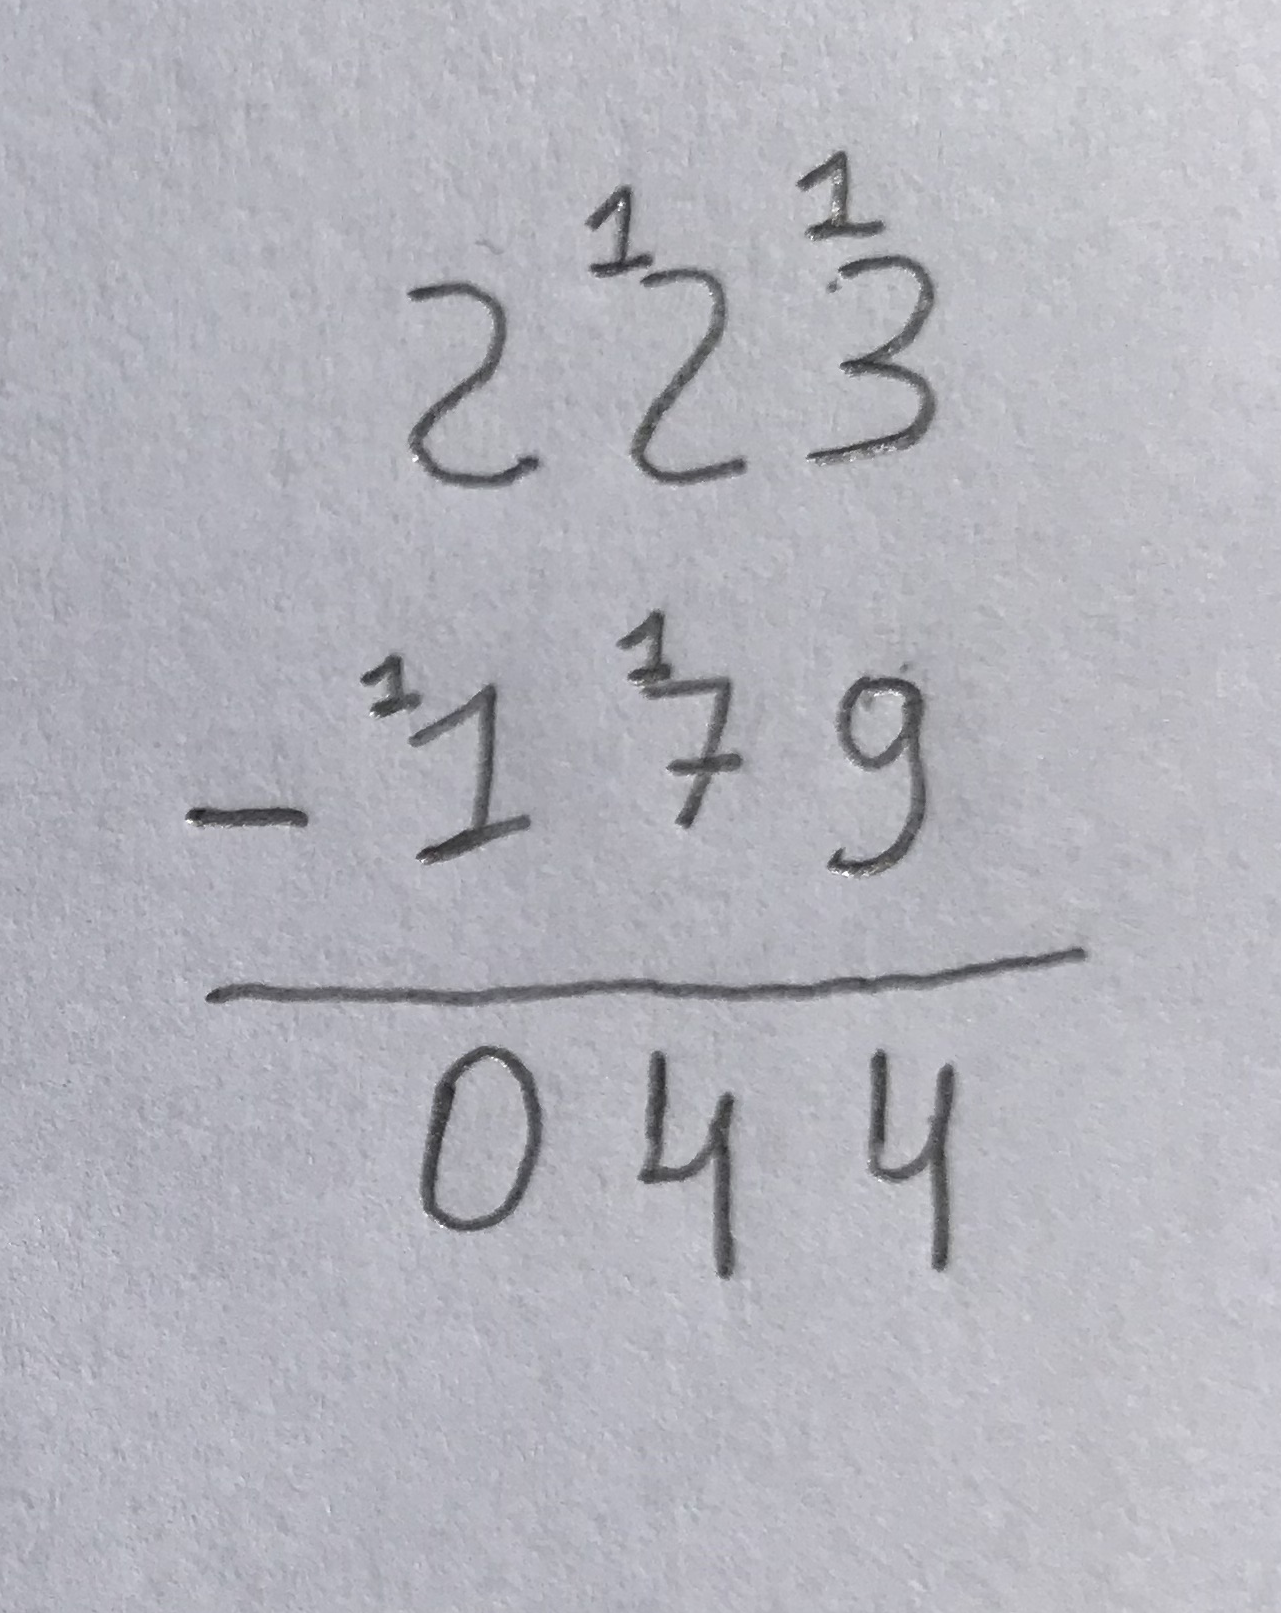 1 1
223
1 1
- 179
044